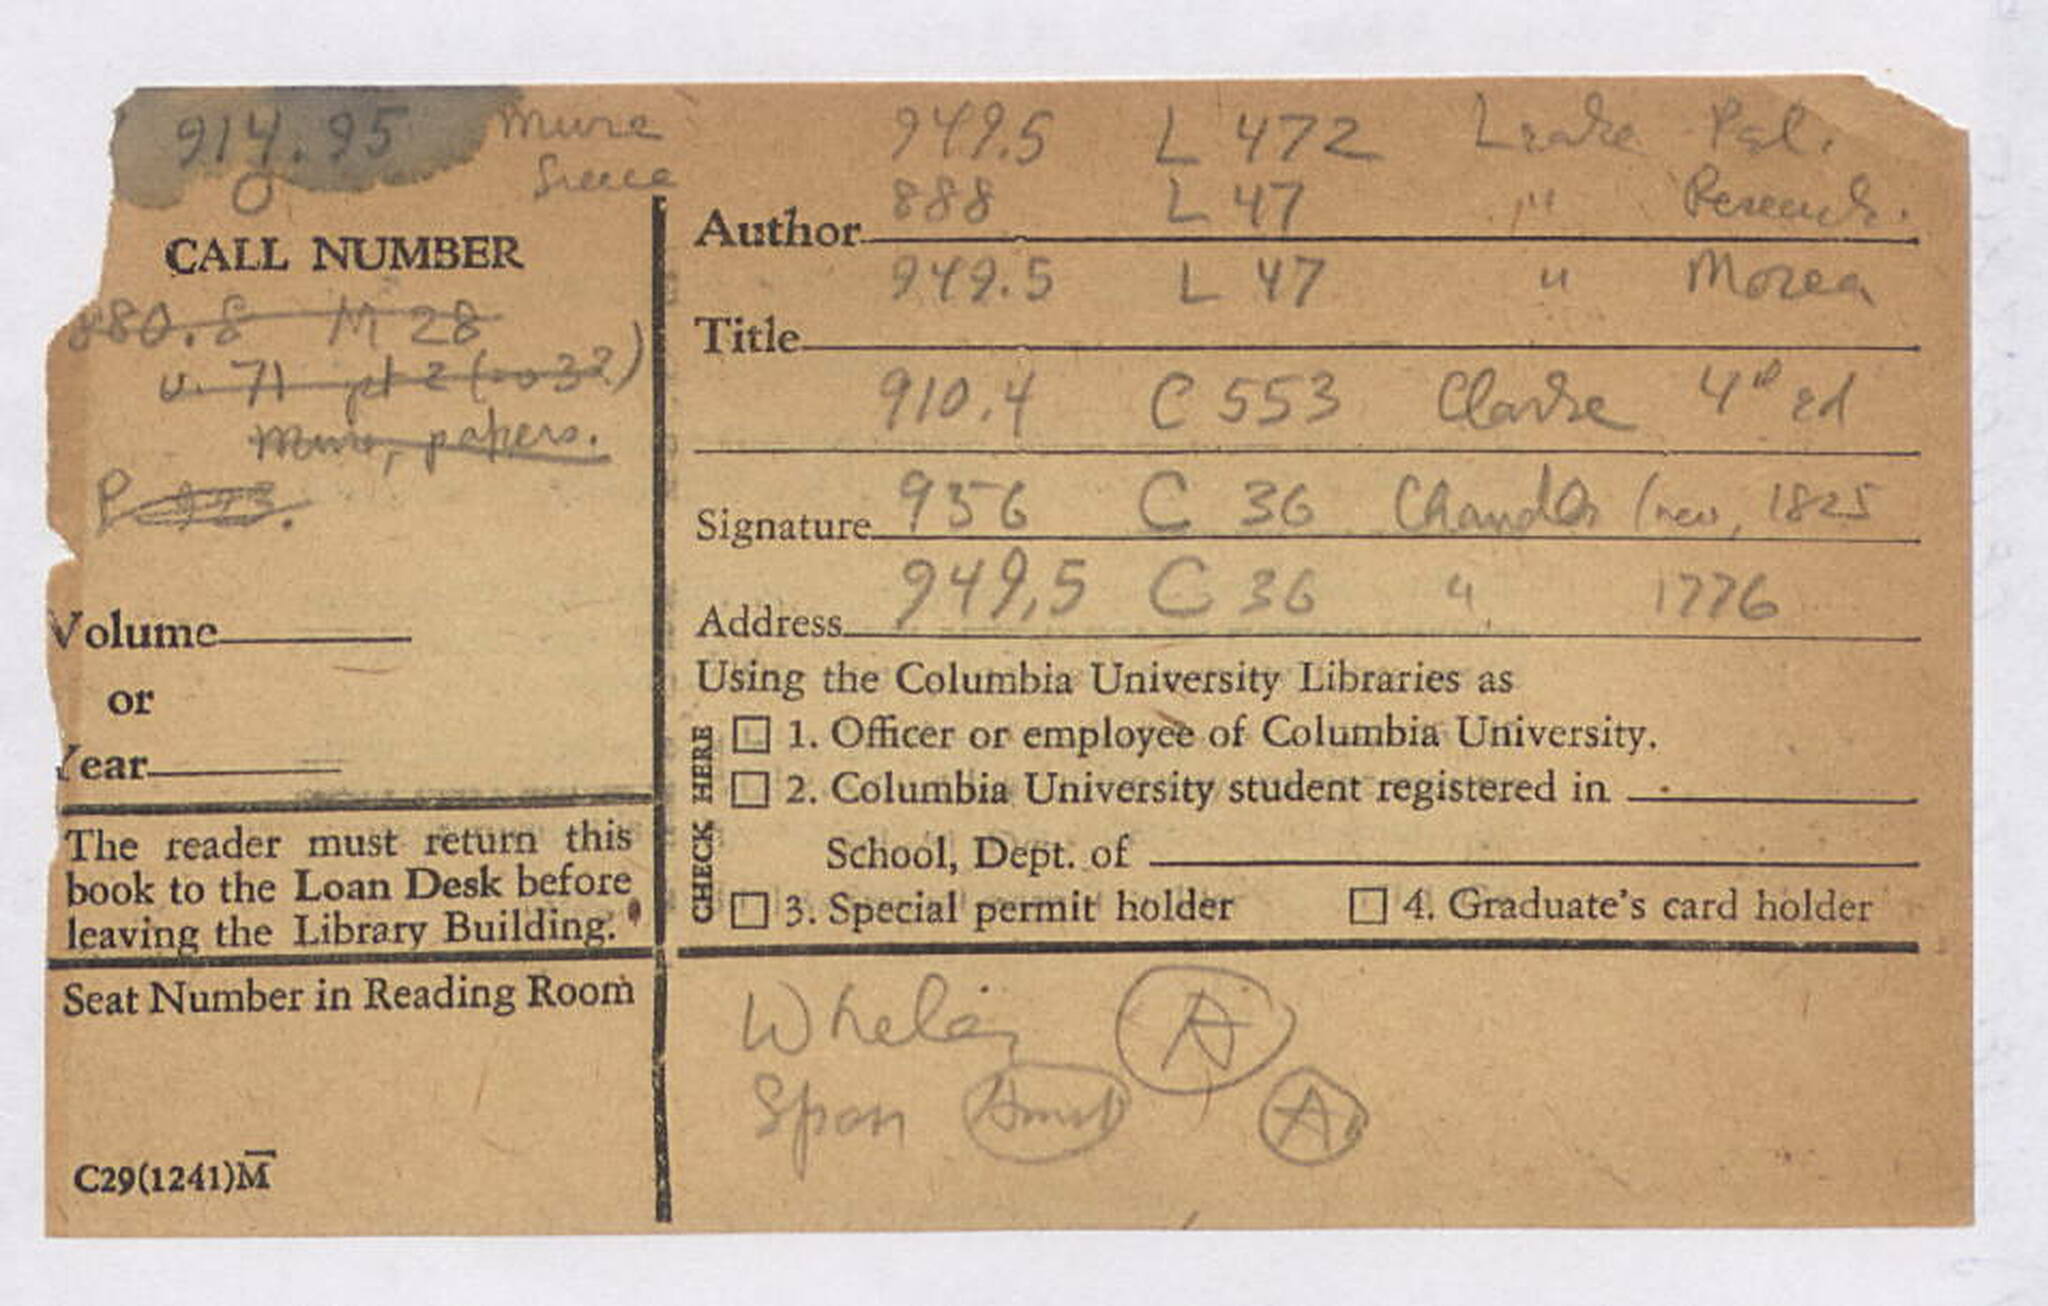 914.95 Mure
Greece
CALL NUMBER
880.8 M 28
v. 71 pt 2 (no 32)
Mure, papers.
P
Volume
or
Year
The reader must return this
book to the Loan Desk before
leaving the Library Building.
Seat Number in Reading Room
C29(1241)M
949.5 L 472 Leake Pel.
888 L 47 " Research.
Author
949.5 L 47 " Morea
Title
910.4 C 553 Clarke 4th ed
Signature 956 C 36 Chandler (rev, 1825
Address 949.5 C 36 " 1776
Using the Columbia University Libraries as
CHECK HERE
1. Officer or employee of Columbia University.
2. Columbia University student registered in
School, Dept. of
3. Special permit holder 4. Graduate's card holder
Wheler A
Spon A